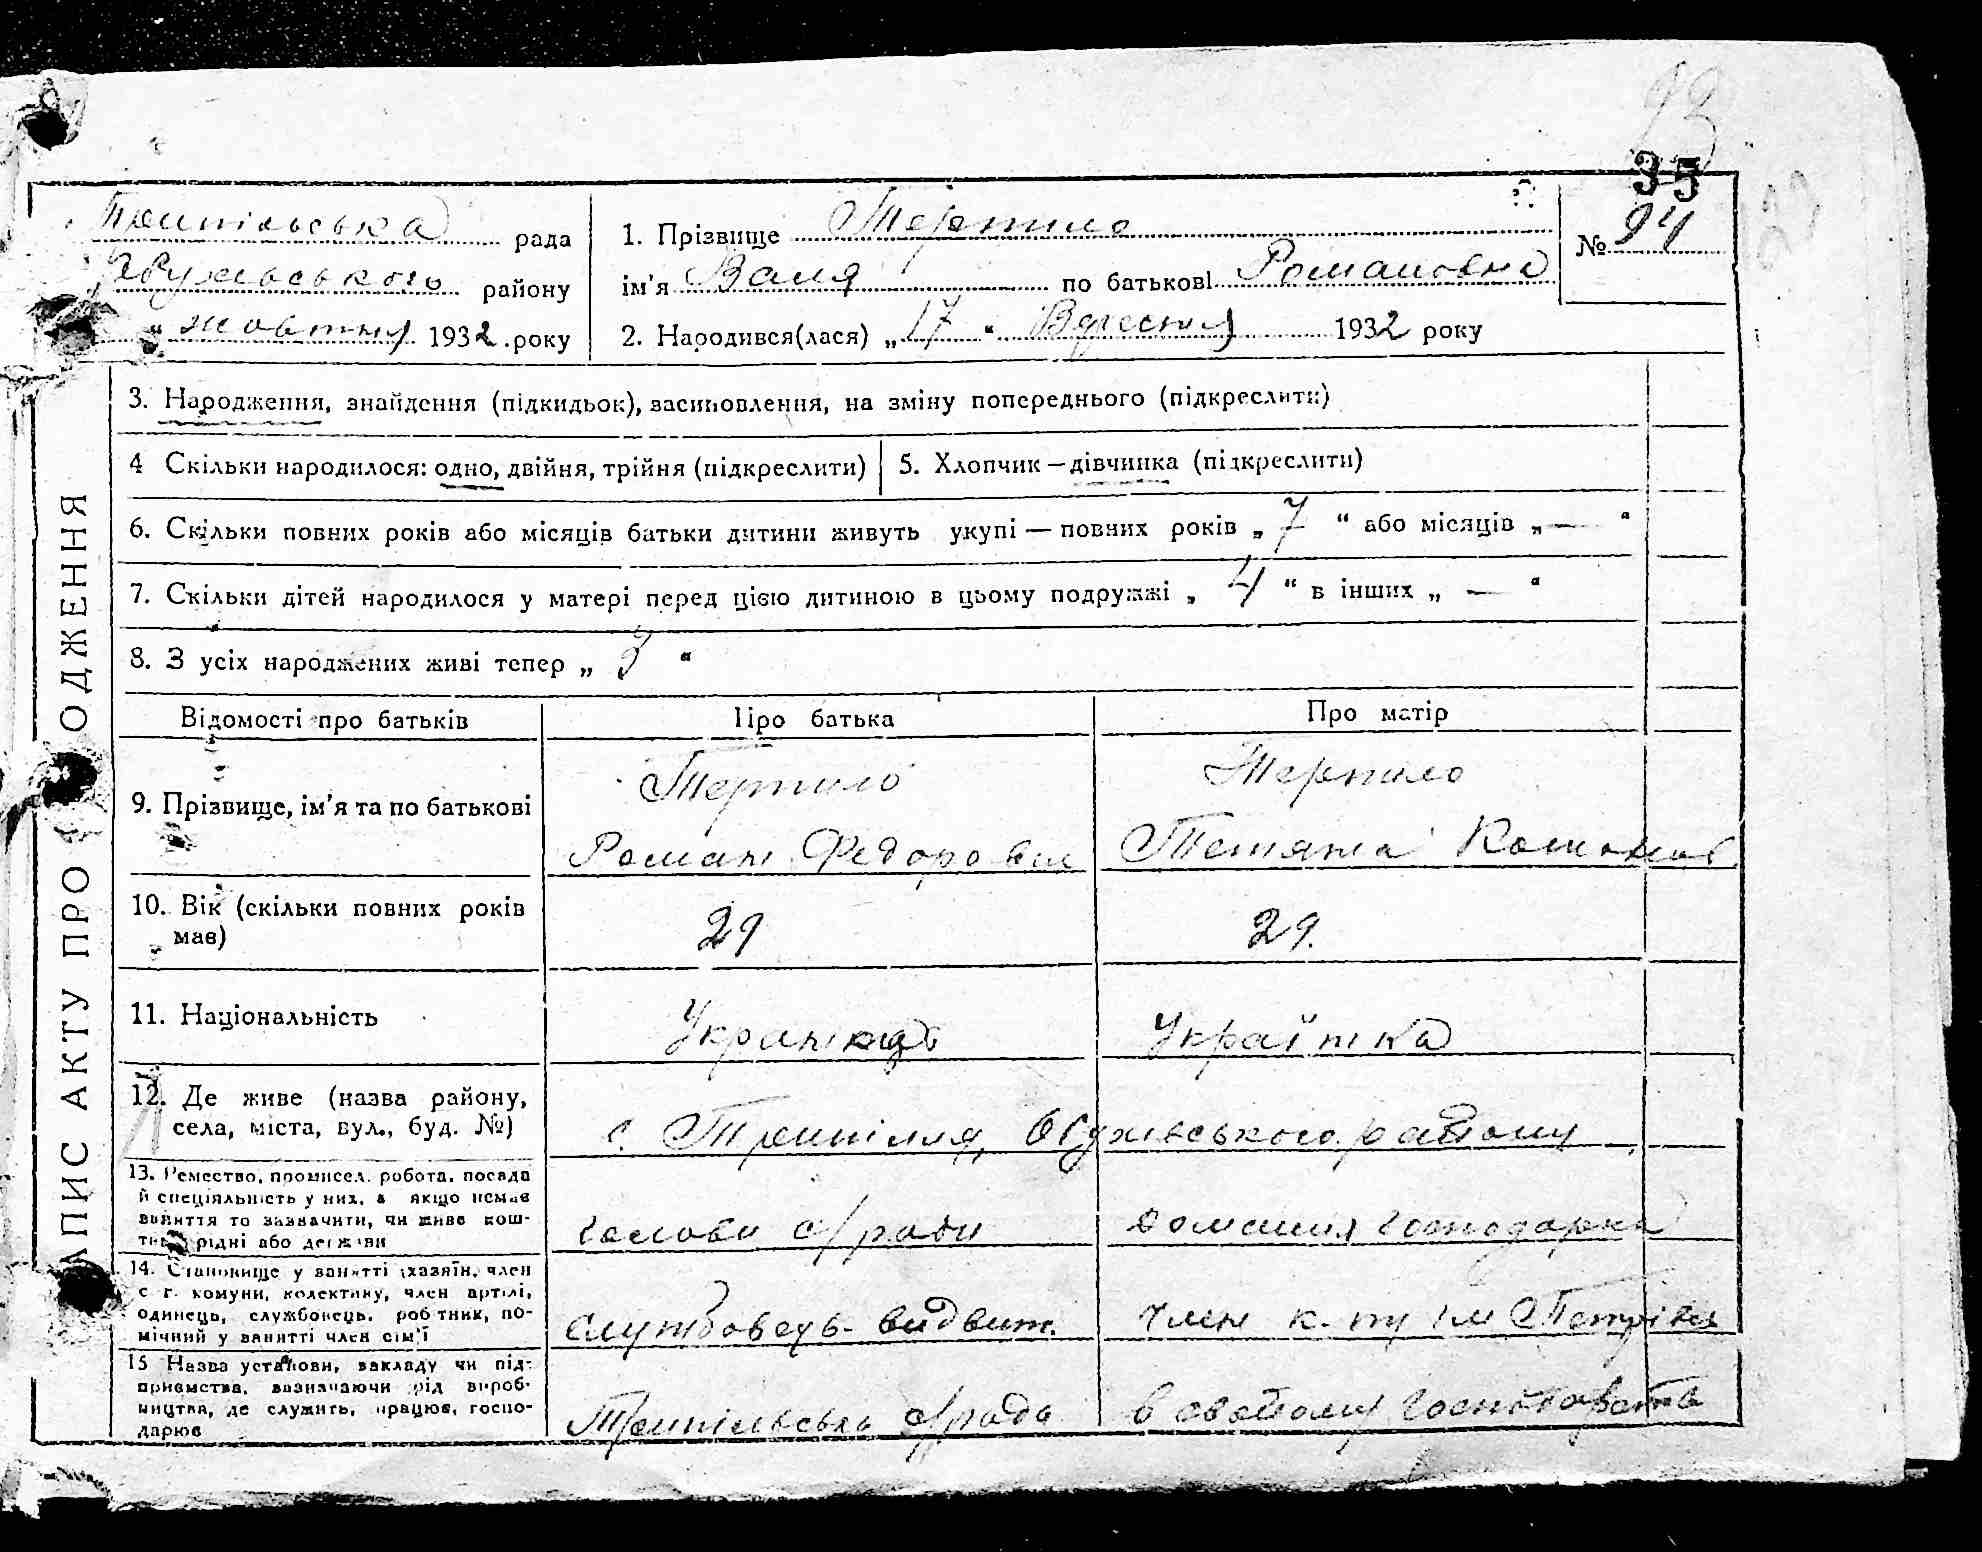 23
35
Трипільська рада
Обухівського району
" жовтня 1932 року
1. Прізвище Терпило
ім'я Валя по батькові Романовна
2. Народився(лася) „17" Вересня 1932 року
№ 94
ЗАПИС АКТУ ПРО НАРОДЖЕННЯ
3. Народження, знайдення (підкидьок), засиновлення, на зміну попереднього (підкреслити)
4 Скільки народилося: одно, двійня, трійня (підкреслити)
5. Хлопчик — дівчинка (підкреслити)
6. Скільки повних років або місяців батьки дитини живуть укупі — повних років „ 7 " або місяців „ — "
7. Скільки дітей народилося у матері перед цією дитиною в цьому подружжі „ 4 " в інших „ — "
8. З усіх народжених живі тепер „ 3 "
Відомості про батьків
Про батька
Про матір
9. Прізвище, ім'я та по батькові
Терпило
Роман Федорович
Терпило
Тетяна
10. Вік (скільки повних років
має)
29
29.
11. Національність
Українець
Українка
12. Де живе (назва району,
села, міста, вул., буд. №)
с. Трипілля, Обухівського району
13. Ремество, промисел, робота, посада
й спеціяльність у них, а якщо немає
заняття то зазначити, чи живе кош-
том рідні або держави
голова с/ради
домашня господарка
14. Становище у занятті (хазяїн, член
с г. комуни, колективу, член артілі,
одинець, службовець, робітник, по-
мічний у занятті член сім'ї
службовець- видвиж.
член к-ту ім Петрівсь
15 Назва установи, закладу чи під-
приємства, зазначаючи рід вироб-
ництва, де служить, працює, госпо-
дарює
Трипільська с/рада
в свойому господарстві